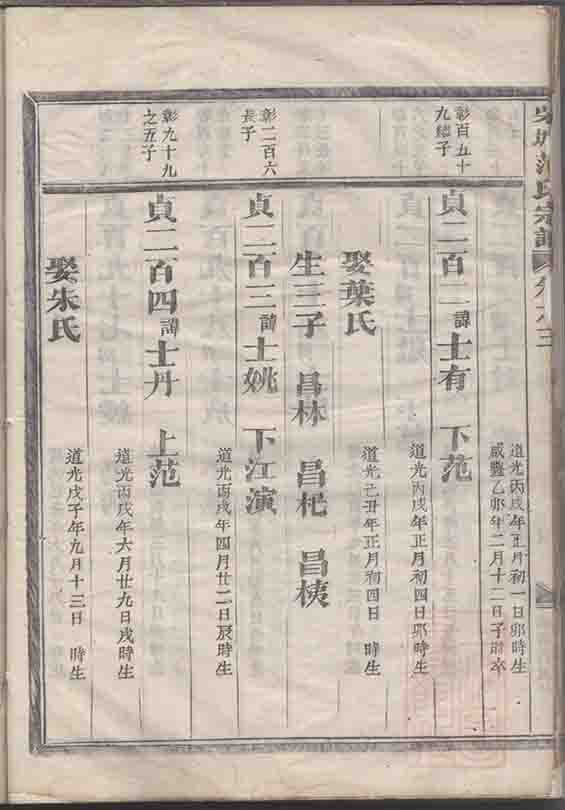 范氏宗譜
彰百五十
九繼子
貞二百二諱士有 下范
道光丙戌年正月初一日卯時生
咸豐乙卯年二月十二日子時卒
道光丙戌年正月初四日卯時生
娶葉氏
道光己丑年正月初四日 時生
生三子 昌林 昌杞 昌桋
彰二百六
長子
貞二百三諱士姚 下江演
道光丙戌年四月廿二日辰時生
彰九十九
之五子
貞二百四諱士丹 上范
道光丙戌年六月廿九日戌時生
娶朱氏
道光戊子年九月十三日 時生